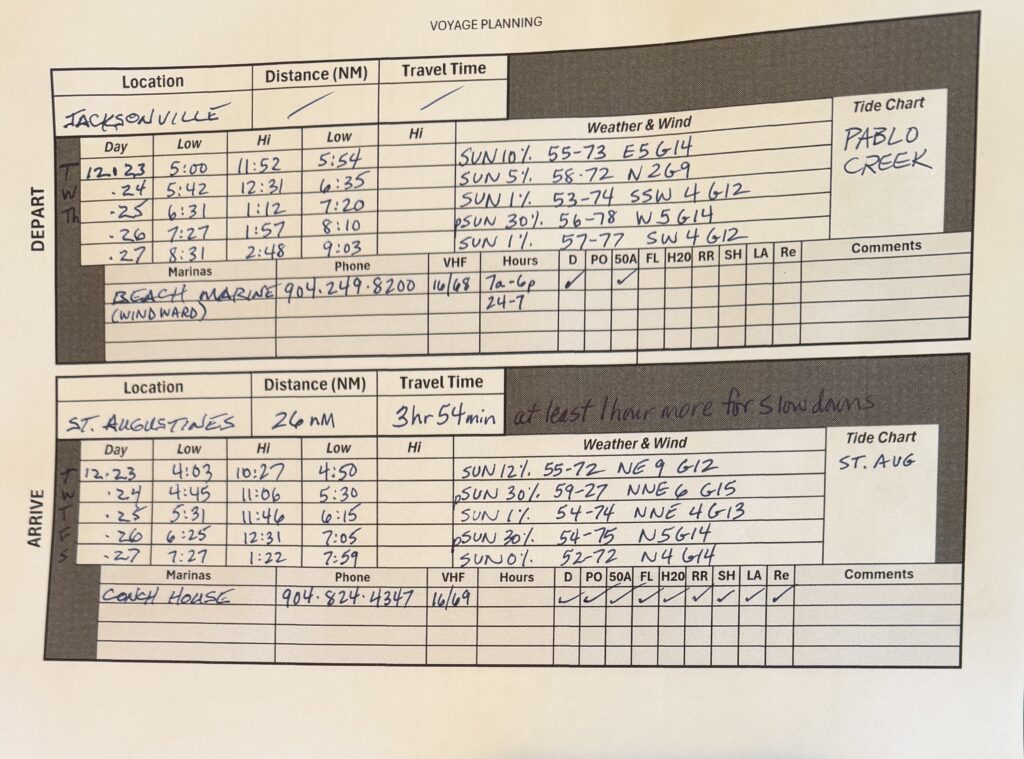 VOYAGE PLANNING
Location Distance (NM) Travel Time
JACKSONVILLE / /
Day Low Hi Low Hi Weather & Wind Tide Chart
T 12.23 5:00 11:52 5:54 SUN 10% 55-73 E5 G14 PABLO
W .24 5:42 12:31 6:35 SUN 5% 58-72 N2G9 CREEK
Th .25 6:31 1:12 7:20 SUN 1% 53-74 SSW 4 G12
.26 7:27 1:57 8:10 pSUN 30% 56-78 W5G14
.27 8:31 2:48 9:03 SUN 1% 57-77 SW 4 G12
DEPART
Marinas Phone VHF Hours D PO 50A FL H20 RR SH LA Re Comments
BEACH MARINE 904.249.8200 16/68 7a-6p ✓ ✓
(WINDWARD) 24-7
Location Distance (NM) Travel Time
ST. AUGUSTINES 26 NM 3hr 54min at least 1 hour more for slow downs
Day Low Hi Low Hi Weather & Wind Tide Chart
T 12.23 4:03 10:27 4:50 SUN 12% 55-72 NE 9 G12 ST. AUG
W .24 4:45 11:06 5:30 pSUN 30% 59-27 NNE 6 G15
T .25 5:31 11:46 6:15 SUN 1% 54-74 NNE 4G13
F .26 6:25 12:31 7:05 pSUN 30% 54-75 N5G14
S .27 7:27 1:22 7:59 SUN 0% 52-72 N4 G14
ARRIVE
Marinas Phone VHF Hours D PO 50A FL H20 RR SH LA Re Comments
CONCH HOUSE 904.824.4347 16/69 ✓ ✓ ✓ ✓ ✓ ✓ ✓ ✓ ✓